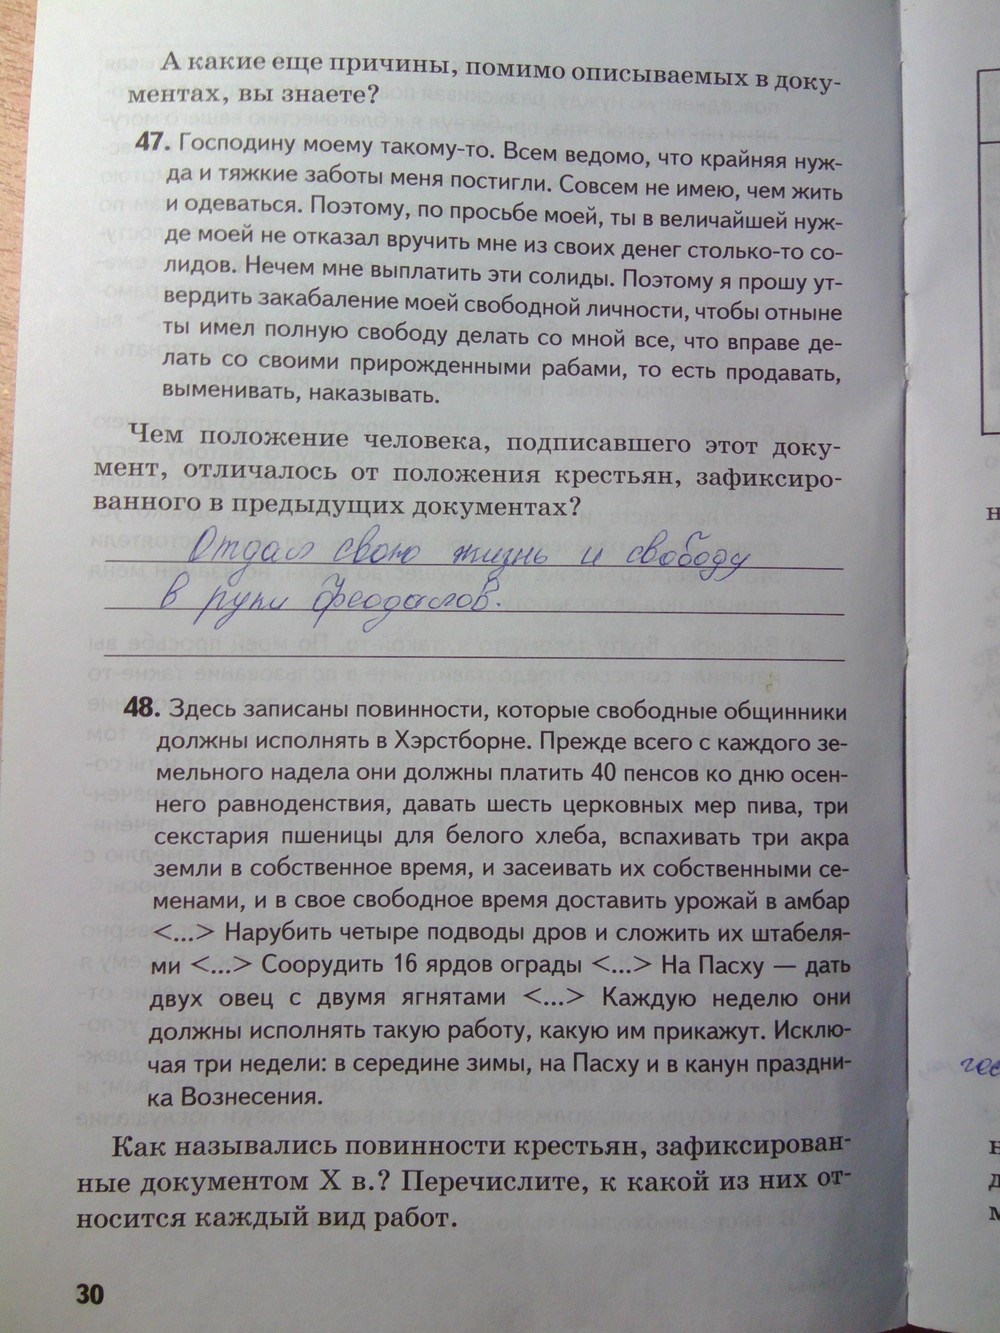 А какие еще причины, помимо описываемых в доку-
ментах, вы знаете?
47. Господину моему такому-то. Всем ведомо, что крайняя нуж-
да и тяжкие заботы меня постигли. Совсем не имею, чем жить
и одеваться. Поэтому, по просьбе моей, ты в величайшей нуж-
де моей не отказал вручить мне из своих денег столько-то со-
лидов. Нечем мне выплатить эти солиды. Поэтому я прошу ут-
вердить закабаление моей свободной личности, чтобы отныне
ты имел полную свободу делать со мной все, что вправе де-
лать со своими прирожденными рабами, то есть продавать,
выменивать, наказывать.
Чем положение человека, подписавшего этот доку-
мент, отличалось от положения крестьян, зафиксиро-
ванного в предыдущих документах?
Отдал свою жизнь и свободу
в руки феодалов.
48. Здесь записаны повинности, которые свободные общинники
должны исполнять в Хэрстборне. Прежде всего с каждого зе-
мельного надела они должны платить 40 пенсов ко дню осен-
него равноденствия, давать шесть церковных мер пива, три
секстария пшеницы для белого хлеба, вспахивать три акра
земли в собственное время, и засеивать их собственными се-
менами, и в свое свободное время доставить урожай в амбар
<...> Нарубить четыре подводы дров и сложить их штабеля-
ми <...> Соорудить 16 ярдов ограды <...> На Пасху — дать
двух овец с двумя ягнятами <...> Каждую неделю они
должны исполнять такую работу, какую им прикажут. Исклю-
чая три недели: в середине зимы, на Пасху и в канун праздни-
ка Вознесения.
Как назывались повинности крестьян, зафиксирован-
ные документом X в.? Перечислите, к какой из них от-
носится каждый вид работ.
30